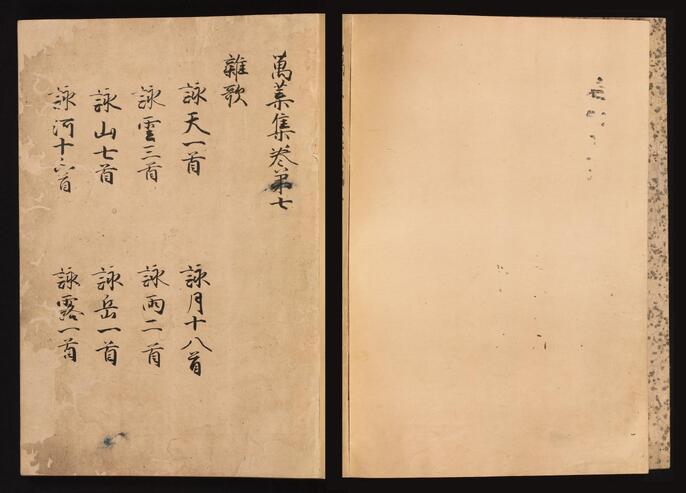 萬葉集巻第七
雜歌
詠天一首
詠月十八首
詠雲三首
詠雨二首
詠山七首
詠岳一首
詠河十六首
詠露一首